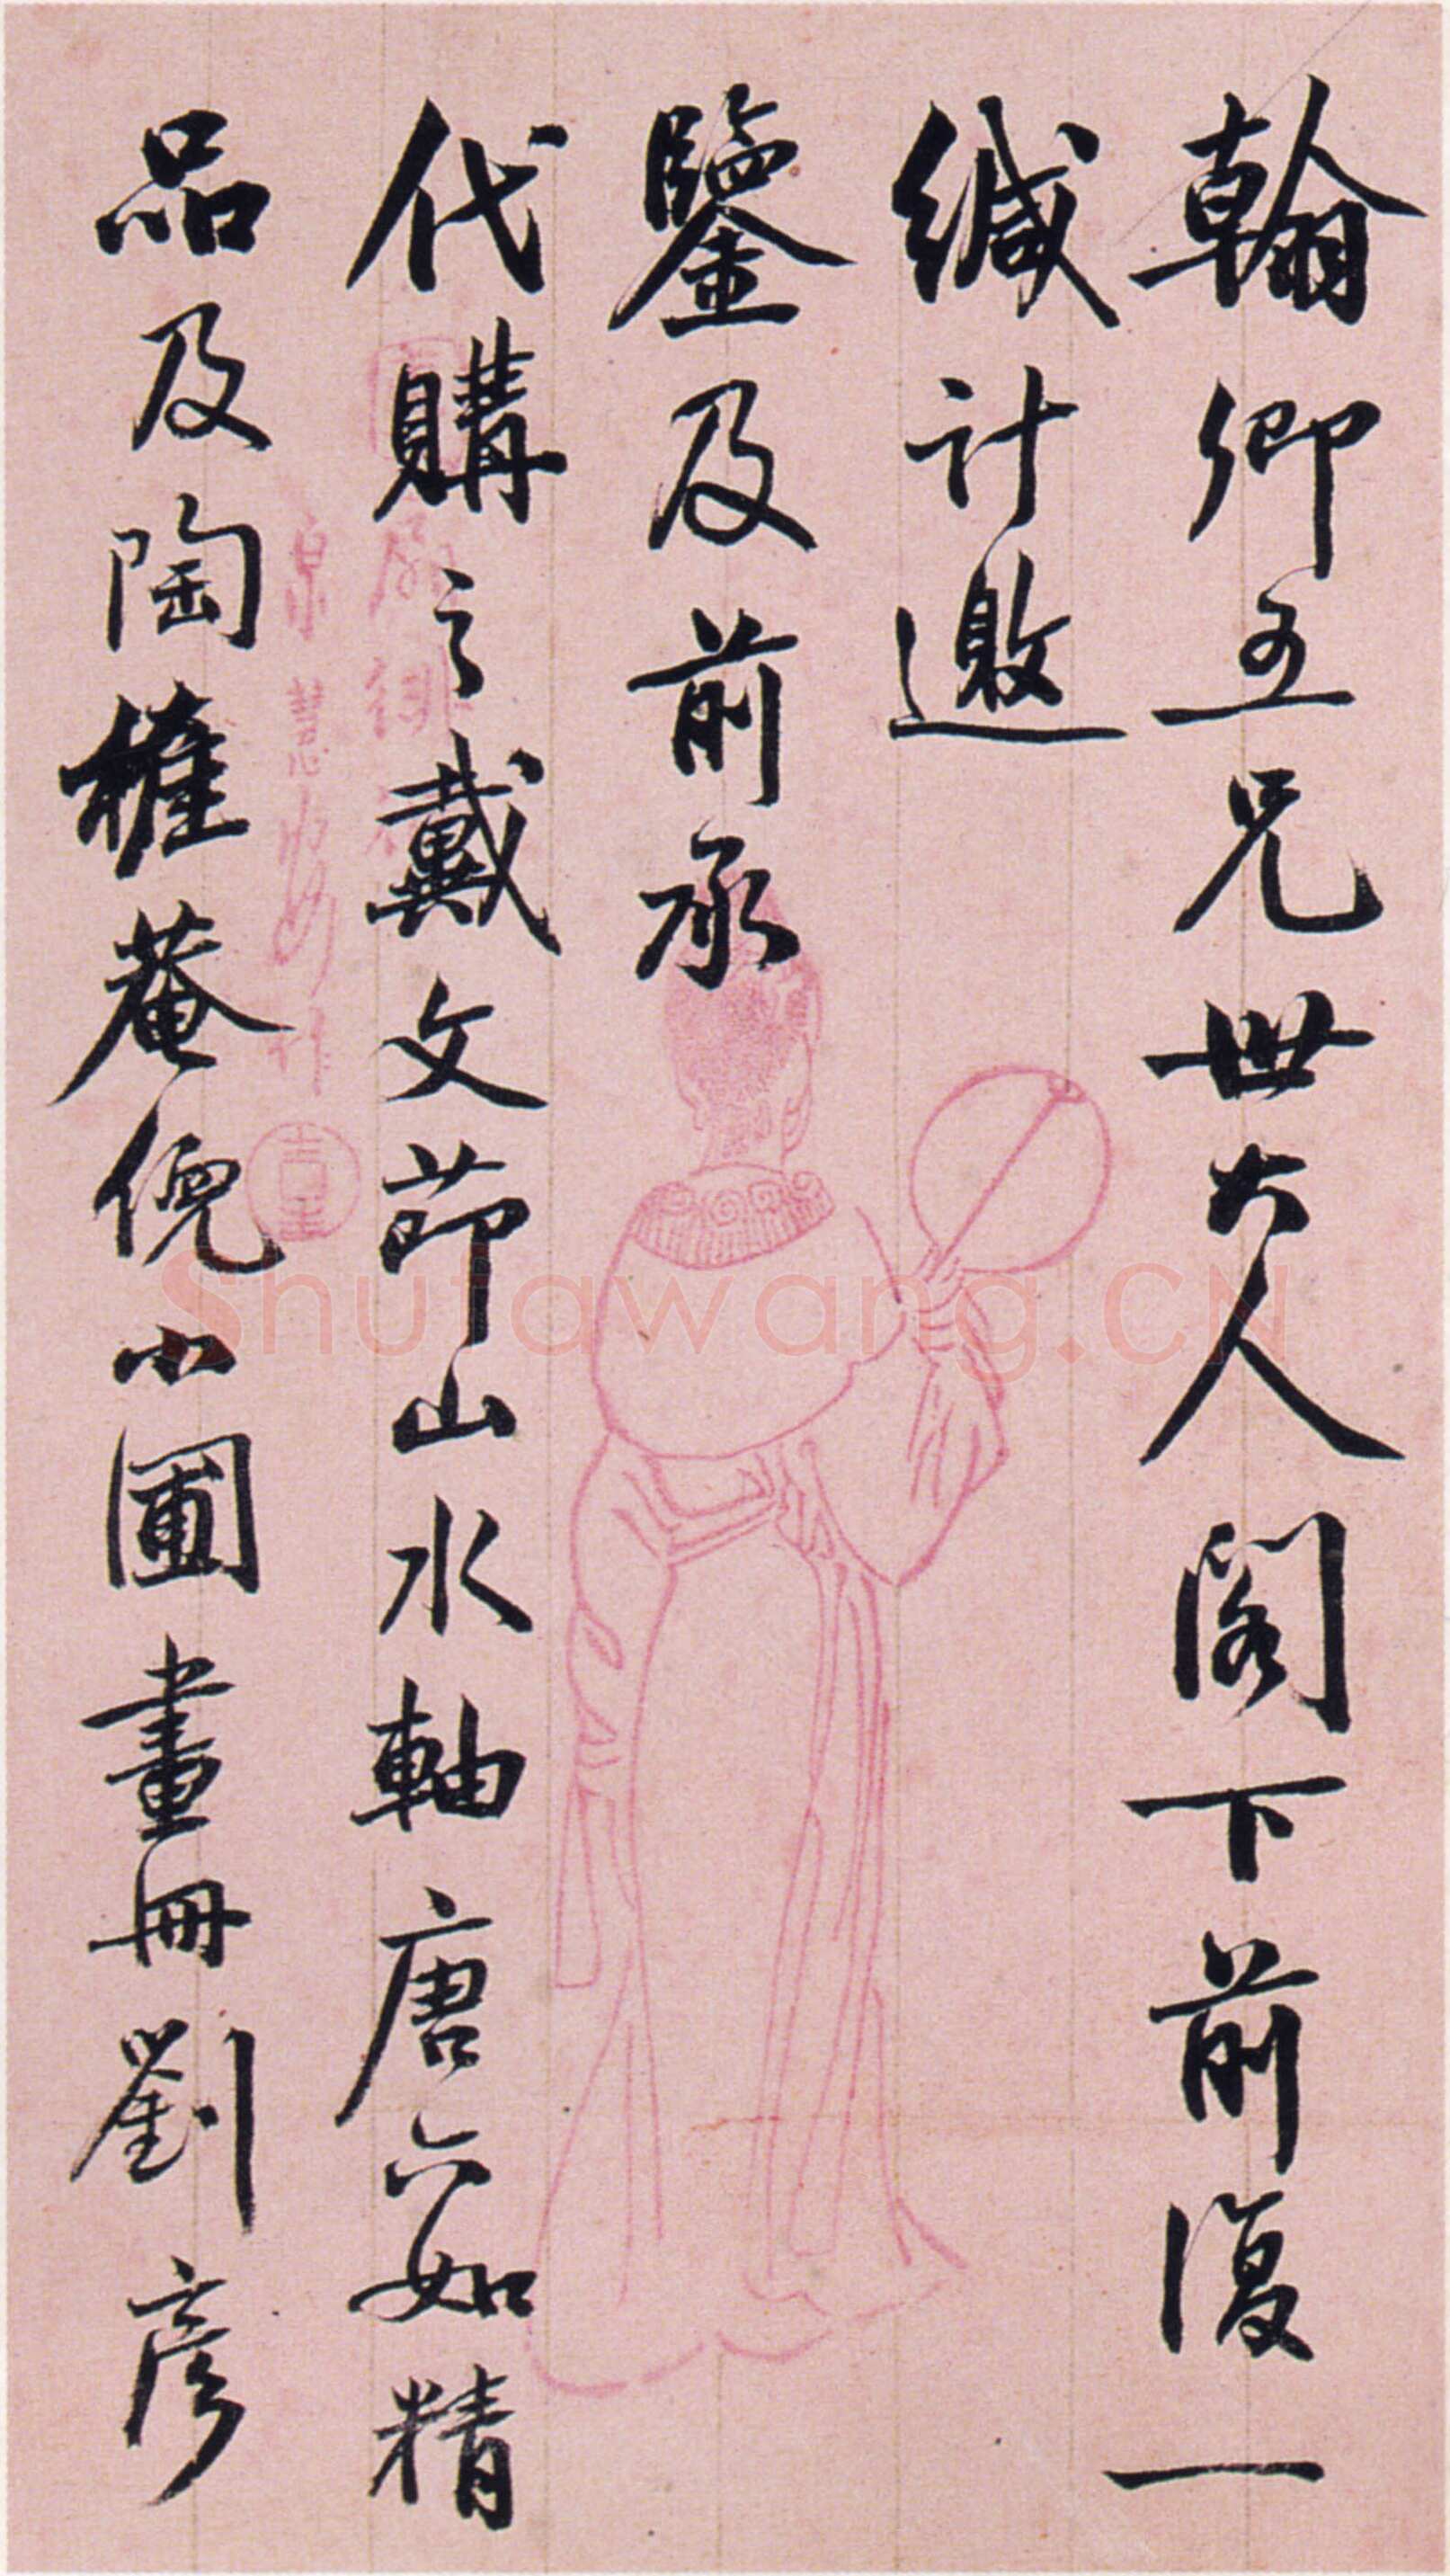 翰卿五兄世大人閣下前復一
緘計邀
鑒及前承
代購之戴文節山水軸唐六如精
品及陶榷菴倪小圃畫冊劉彥
Shufawang.CN